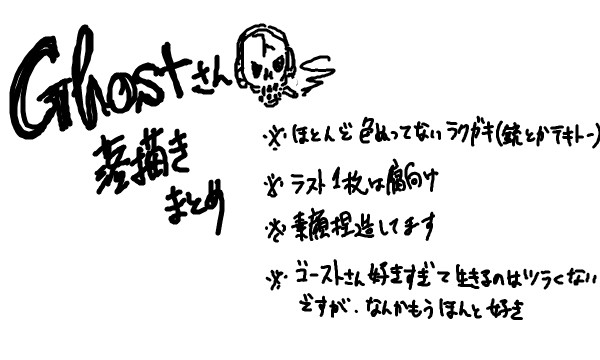 Ghostさん
落描き
まとめ
※ほとんど色ぬってないラクガキ(銃とかテキトー)
※ラスト1枚は腐向け
※素顔捏造してます
※ゴーストさん好きすぎて生きるのはツラくない
ですが、なんかもうほんと好き